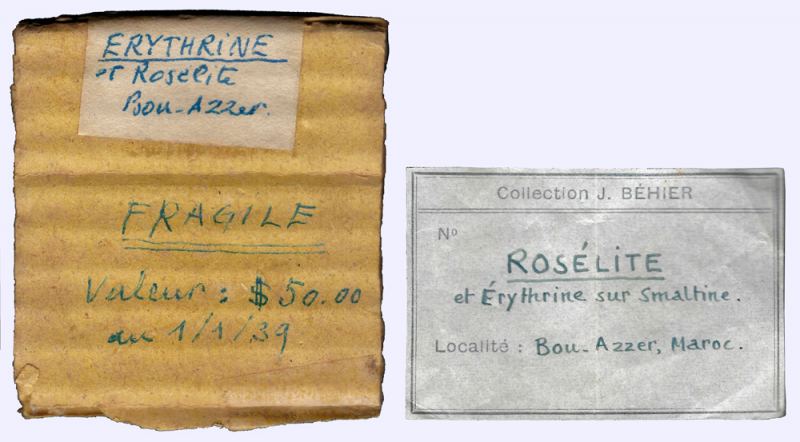 ERYTHRINE
et Rosélite
Bou-Azzer.
FRAGILE
Valeur : $50.00
au 1/1/39
Collection J. BÉHIER
No
ROSÉLITE
et Érythrine sur Smaltine.
Localité : Bou-Azzer, Maroc.